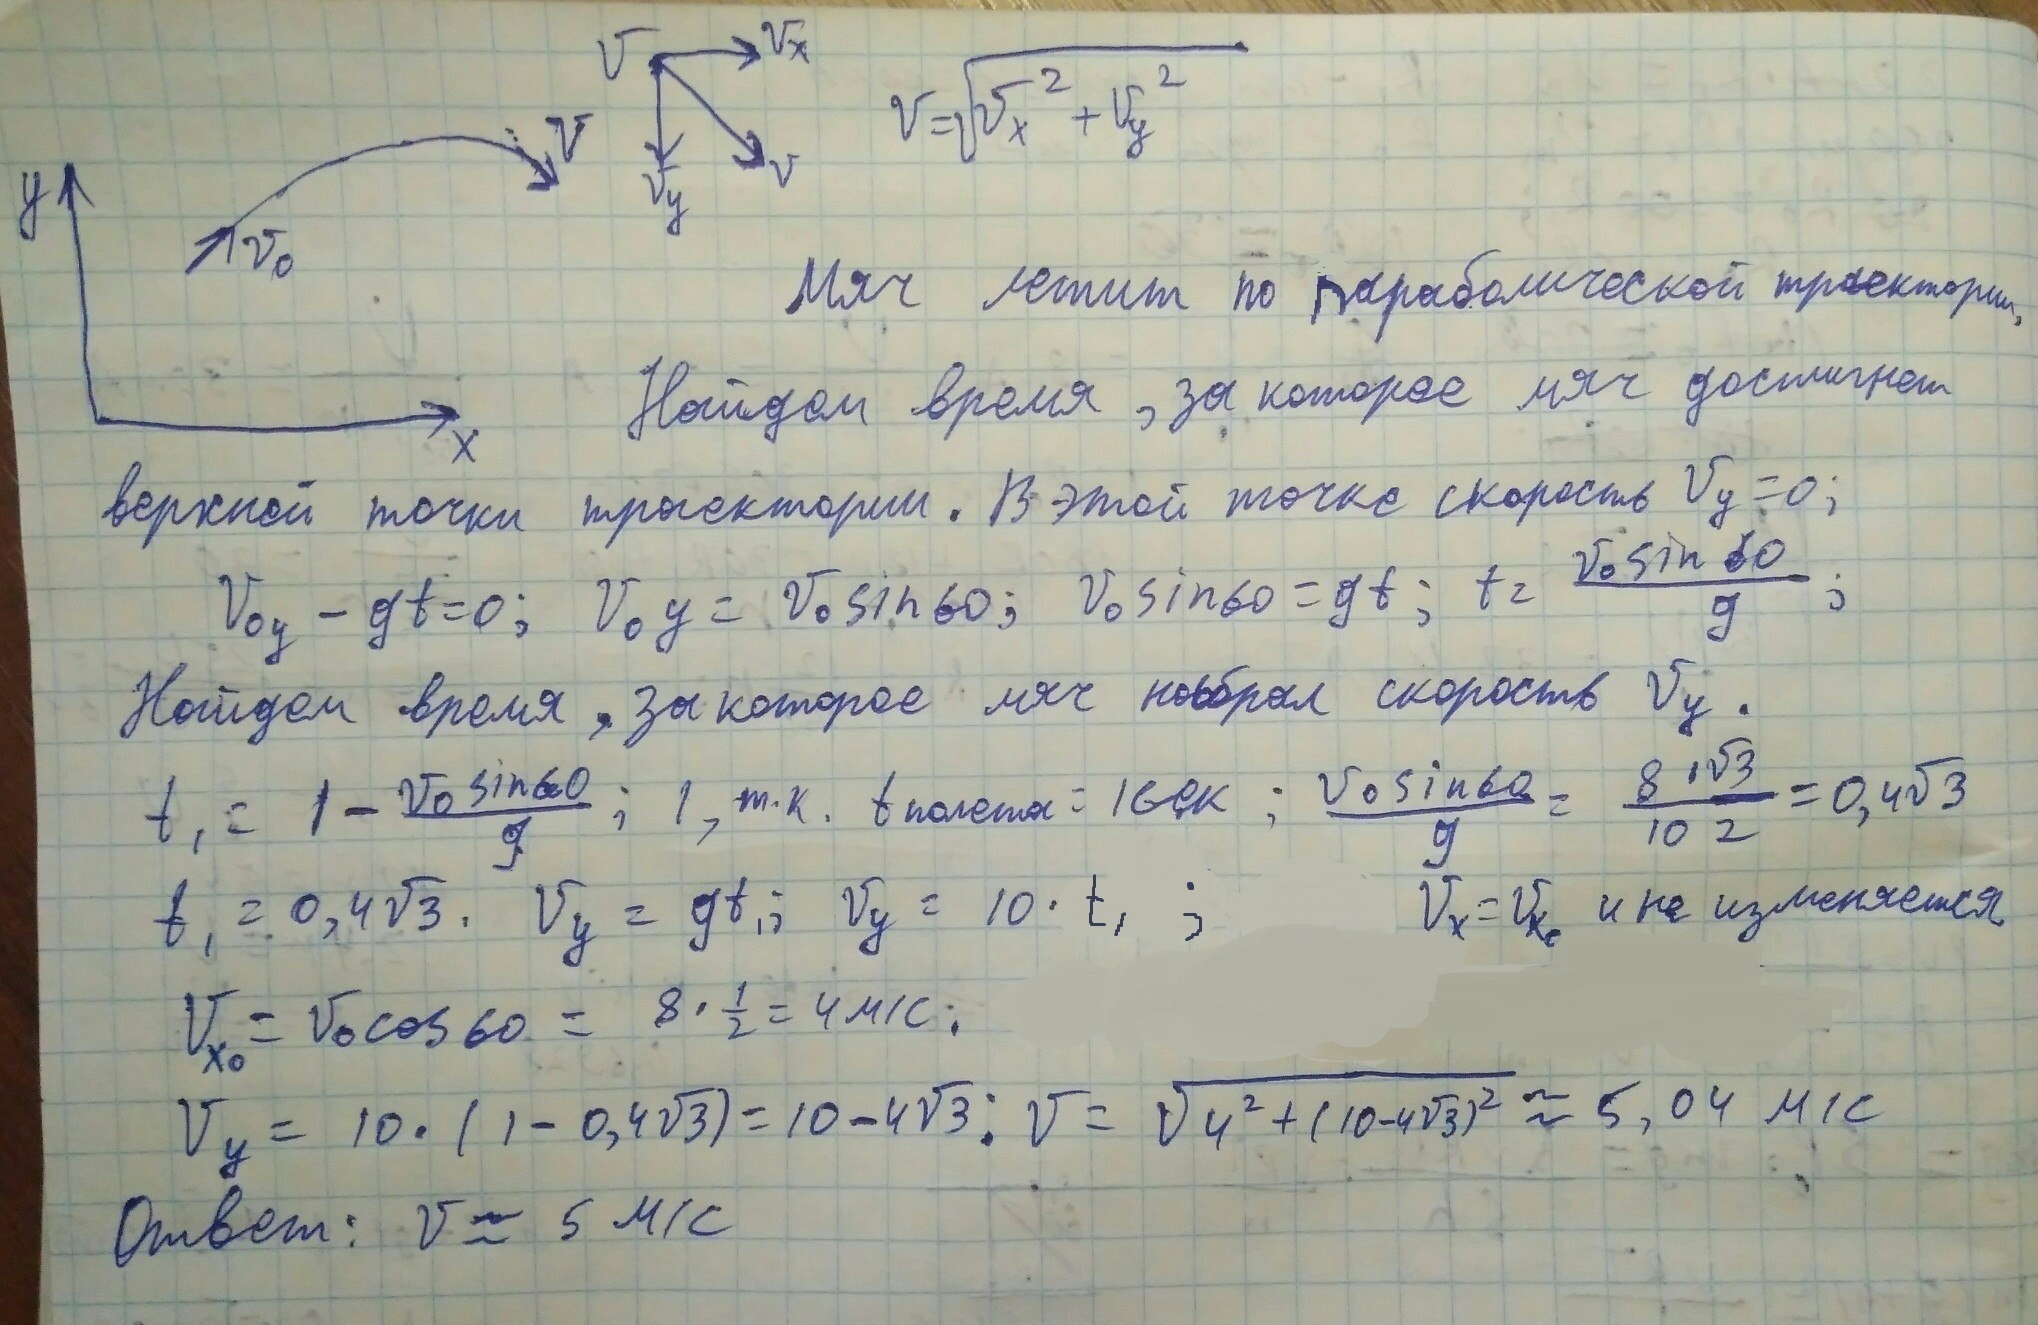 V Vx
V = √(Vx² + Vy²)
V
y
V0
Vy
V
x
Мяч летит по параболической траектории,
Найдем время, за которое мяч достигнет
верхней точки траектории. В этой точке скорость Vy=0;
V0y - gt=0; V0y = V0 sin60; V0 sin60 = gt; t = V0 sin 60 / g;
Найдем время, за которое мяч набрал скорость Vy.
t1 = 1 - V0 sin60 / g; 1, т.к. t полета = 1 сек; V0 sin60 / g = 8·√3 / 10 2 = 0,4√3
t1 = 0,4√3. Vy = gt1; Vy = 10·t1; Vx = Vx0 и не изменяется
Vx0 = V0 cos60 = 8·1/2 = 4 м/с;
Vy = 10·(1-0,4√3) = 10-4√3; V = √(4²+(10-4√3)²) ≈ 5,04 м/с
Ответ: V ≈ 5 м/с